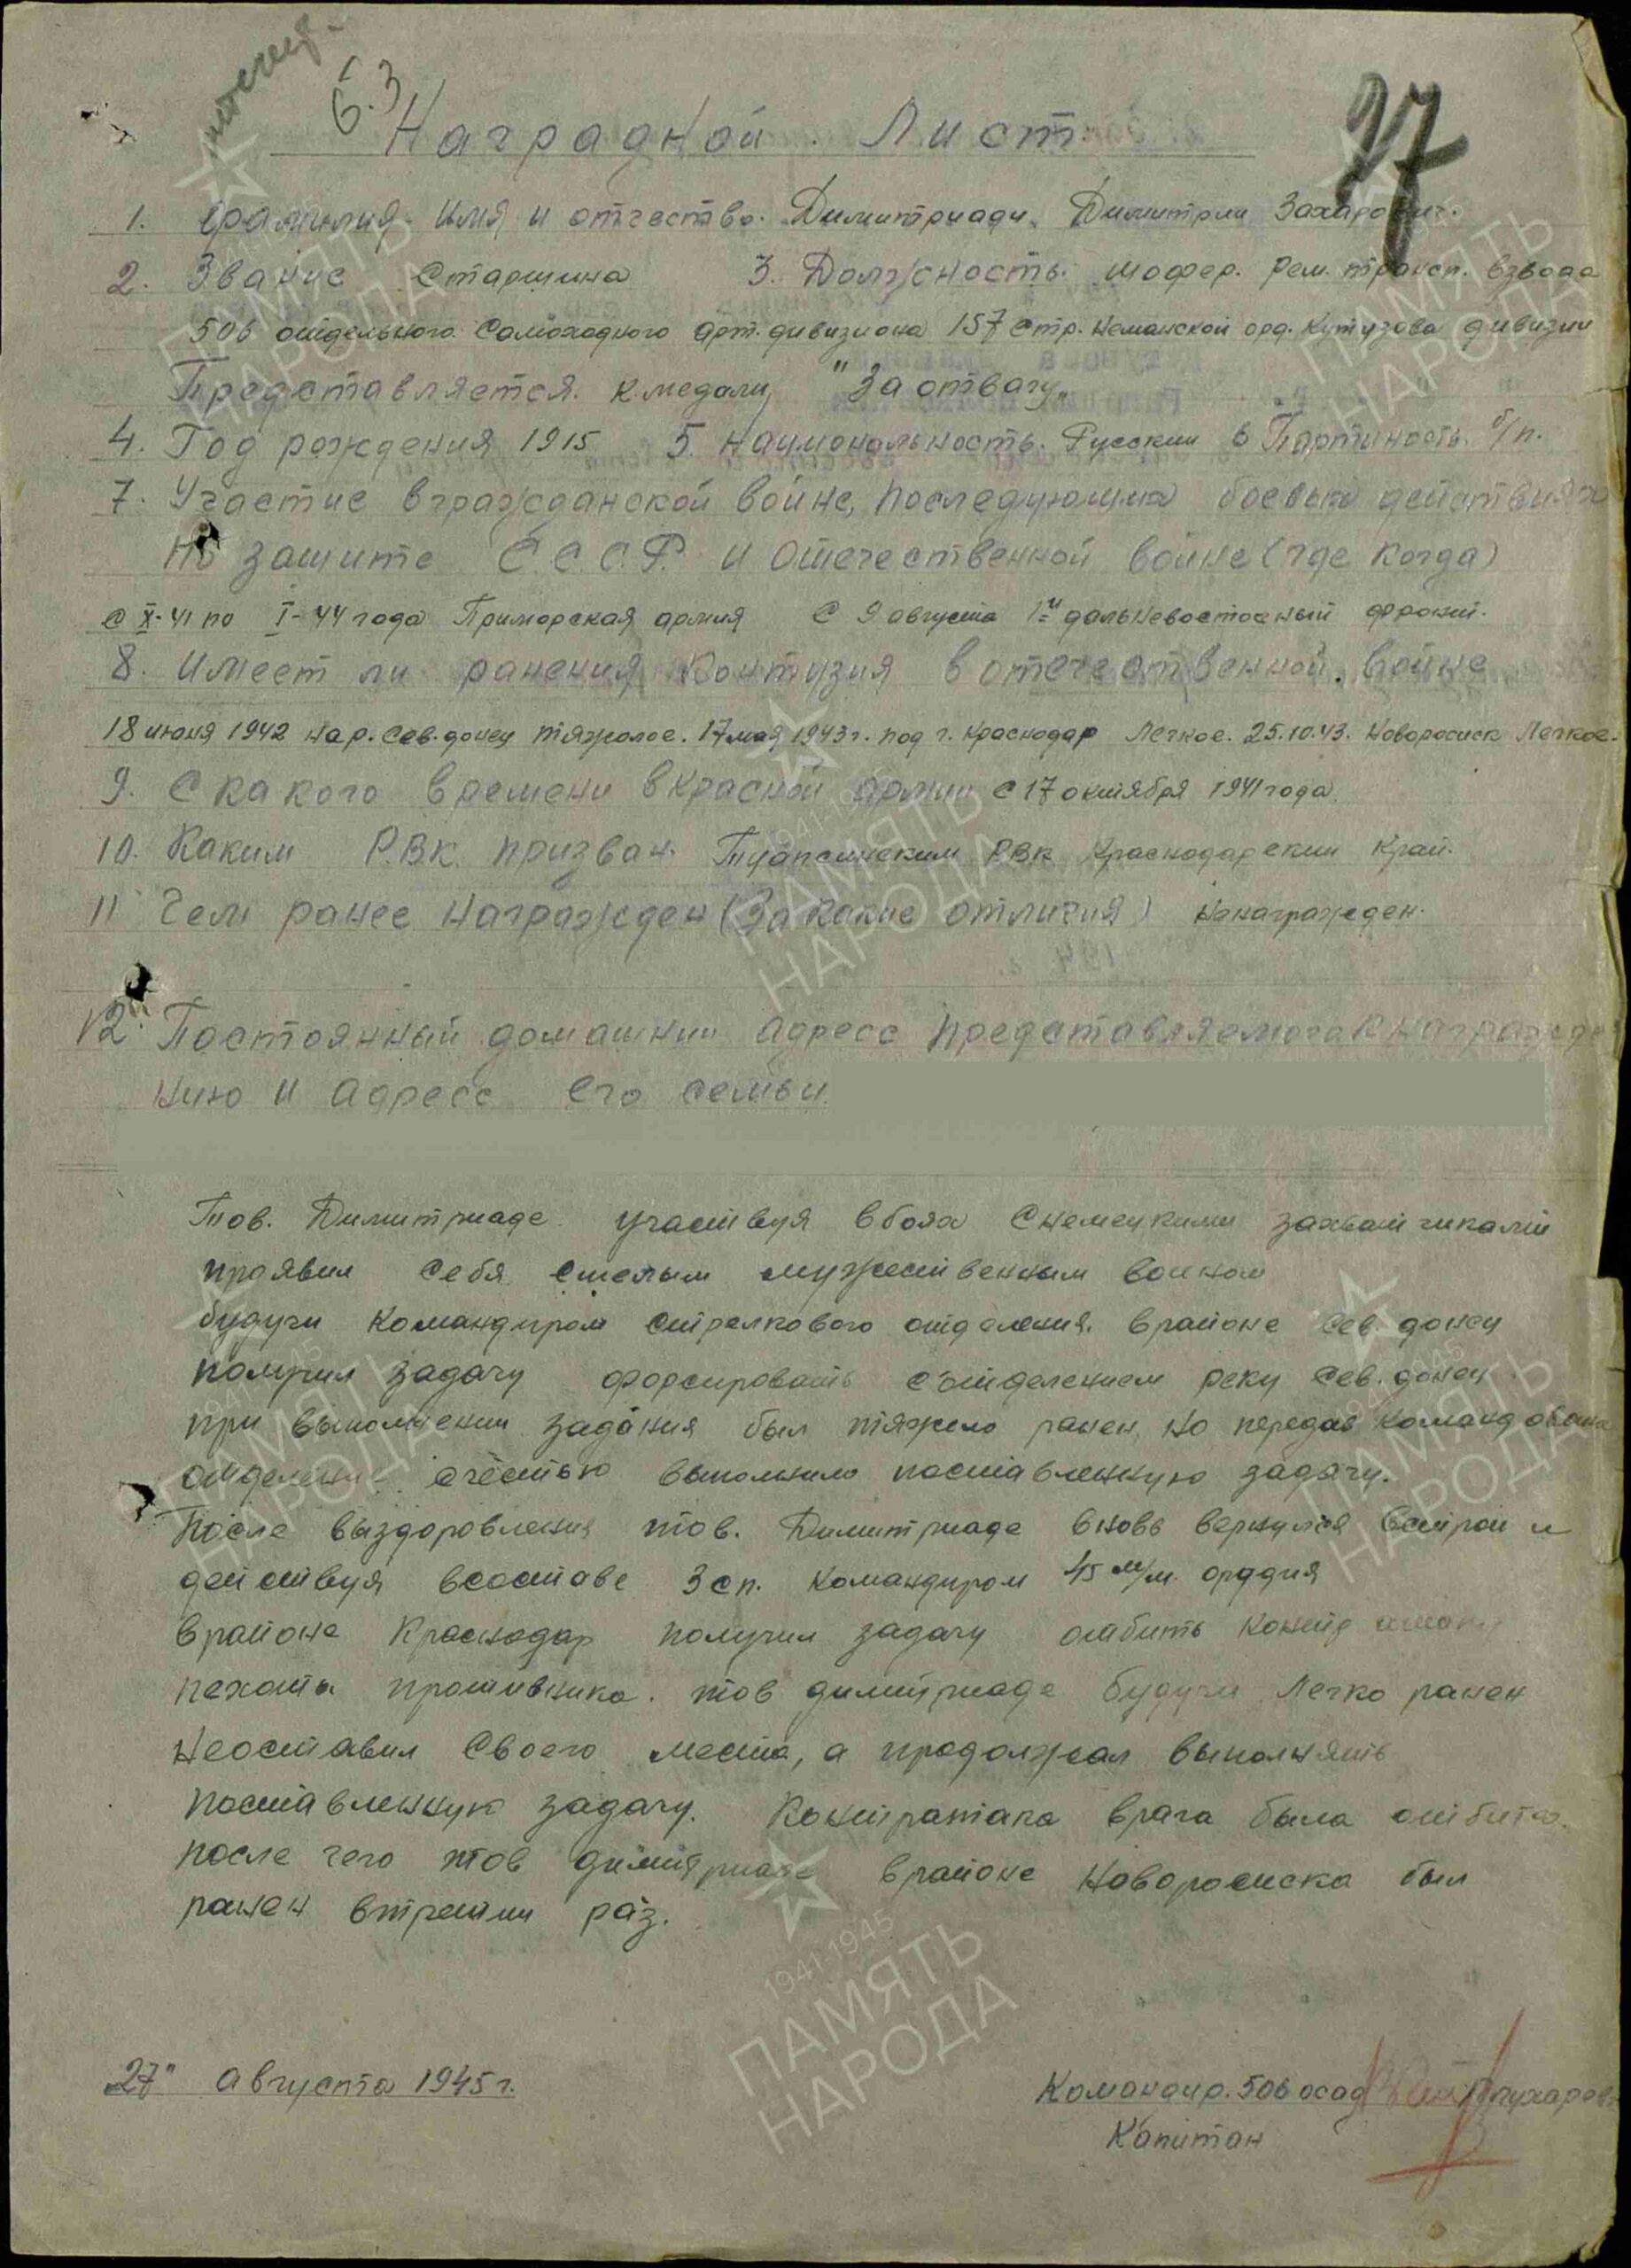 6.3
27
Наградной Лист
1. Фамилия. Имя и отчество. Димитриади. Димитрии Захарович.
2. Звание Старшина 3. Должность. шофер. Рем. трансп. взвода
506 отдельного. Самоходного арт. дивизиона 157 стр. Неманской орд. Кутузова дивизии
Представляется. к медали "За отвагу"
4. Год рождения 1915 5. Национольность. Русскии 6 Партиность. б/п.
7. Участие в гражданской войне, последующих боевых действиях
по защите С.С.С.Р. и Отечественной войне (где когда)
с X-41 по I-44 года Приморская армия С 9 августа 1й дальневосточный фронт.
8. Имеет ли ранения Контузия в отечественной. войне
18 июня 1942 на р. Сев. донец тяжолое. 17 мая 1943 г. под г. Краснодар Легкое. 25.10.43. Новоросиск Легкое.
9. С какого времени в красной армии с 17 октября 1941 года.
10. Каким Р.В.К. призван. Туапсинским РВК Краснодарскии Край.
11 Чем ранее награжден (За какие отличия) ненагражден.
12. Постоянный домашнии адресс представляемого к награжде
нию и адресс его семьи
Тов. Димитриаде участвуя в боях с немецкими захватчиками
проявил себя смелым мужественным воином
будучи командиром стрелкового отделения. в раионе Сев. донец
получил задачу форсировать с отделением реку Сев. донец
при выполнении задания был тяжело ранен, но передав командование
отделение с честью выполнило поставленную задачу.
После выздоровления тов. Димитриаде вновь вернулся в строи и
деиствуя в составе 3 сп. командиром 45 м/м. орудия
в раионе Краснодар получил задачу отбить
пехоты противника. тов димитриаде будучи легко ранен
неоставил своего места, а продолжал выполнять
поставленную задачу. Контратака врага была отбита.
после чего тов димитриаде в раионе Новоросиска был
ранен в третии раз.
27" августа 1945 г.
Командир. 506 осад
Капитан
1941-1945
ПАМЯТЬ
НАРОДА